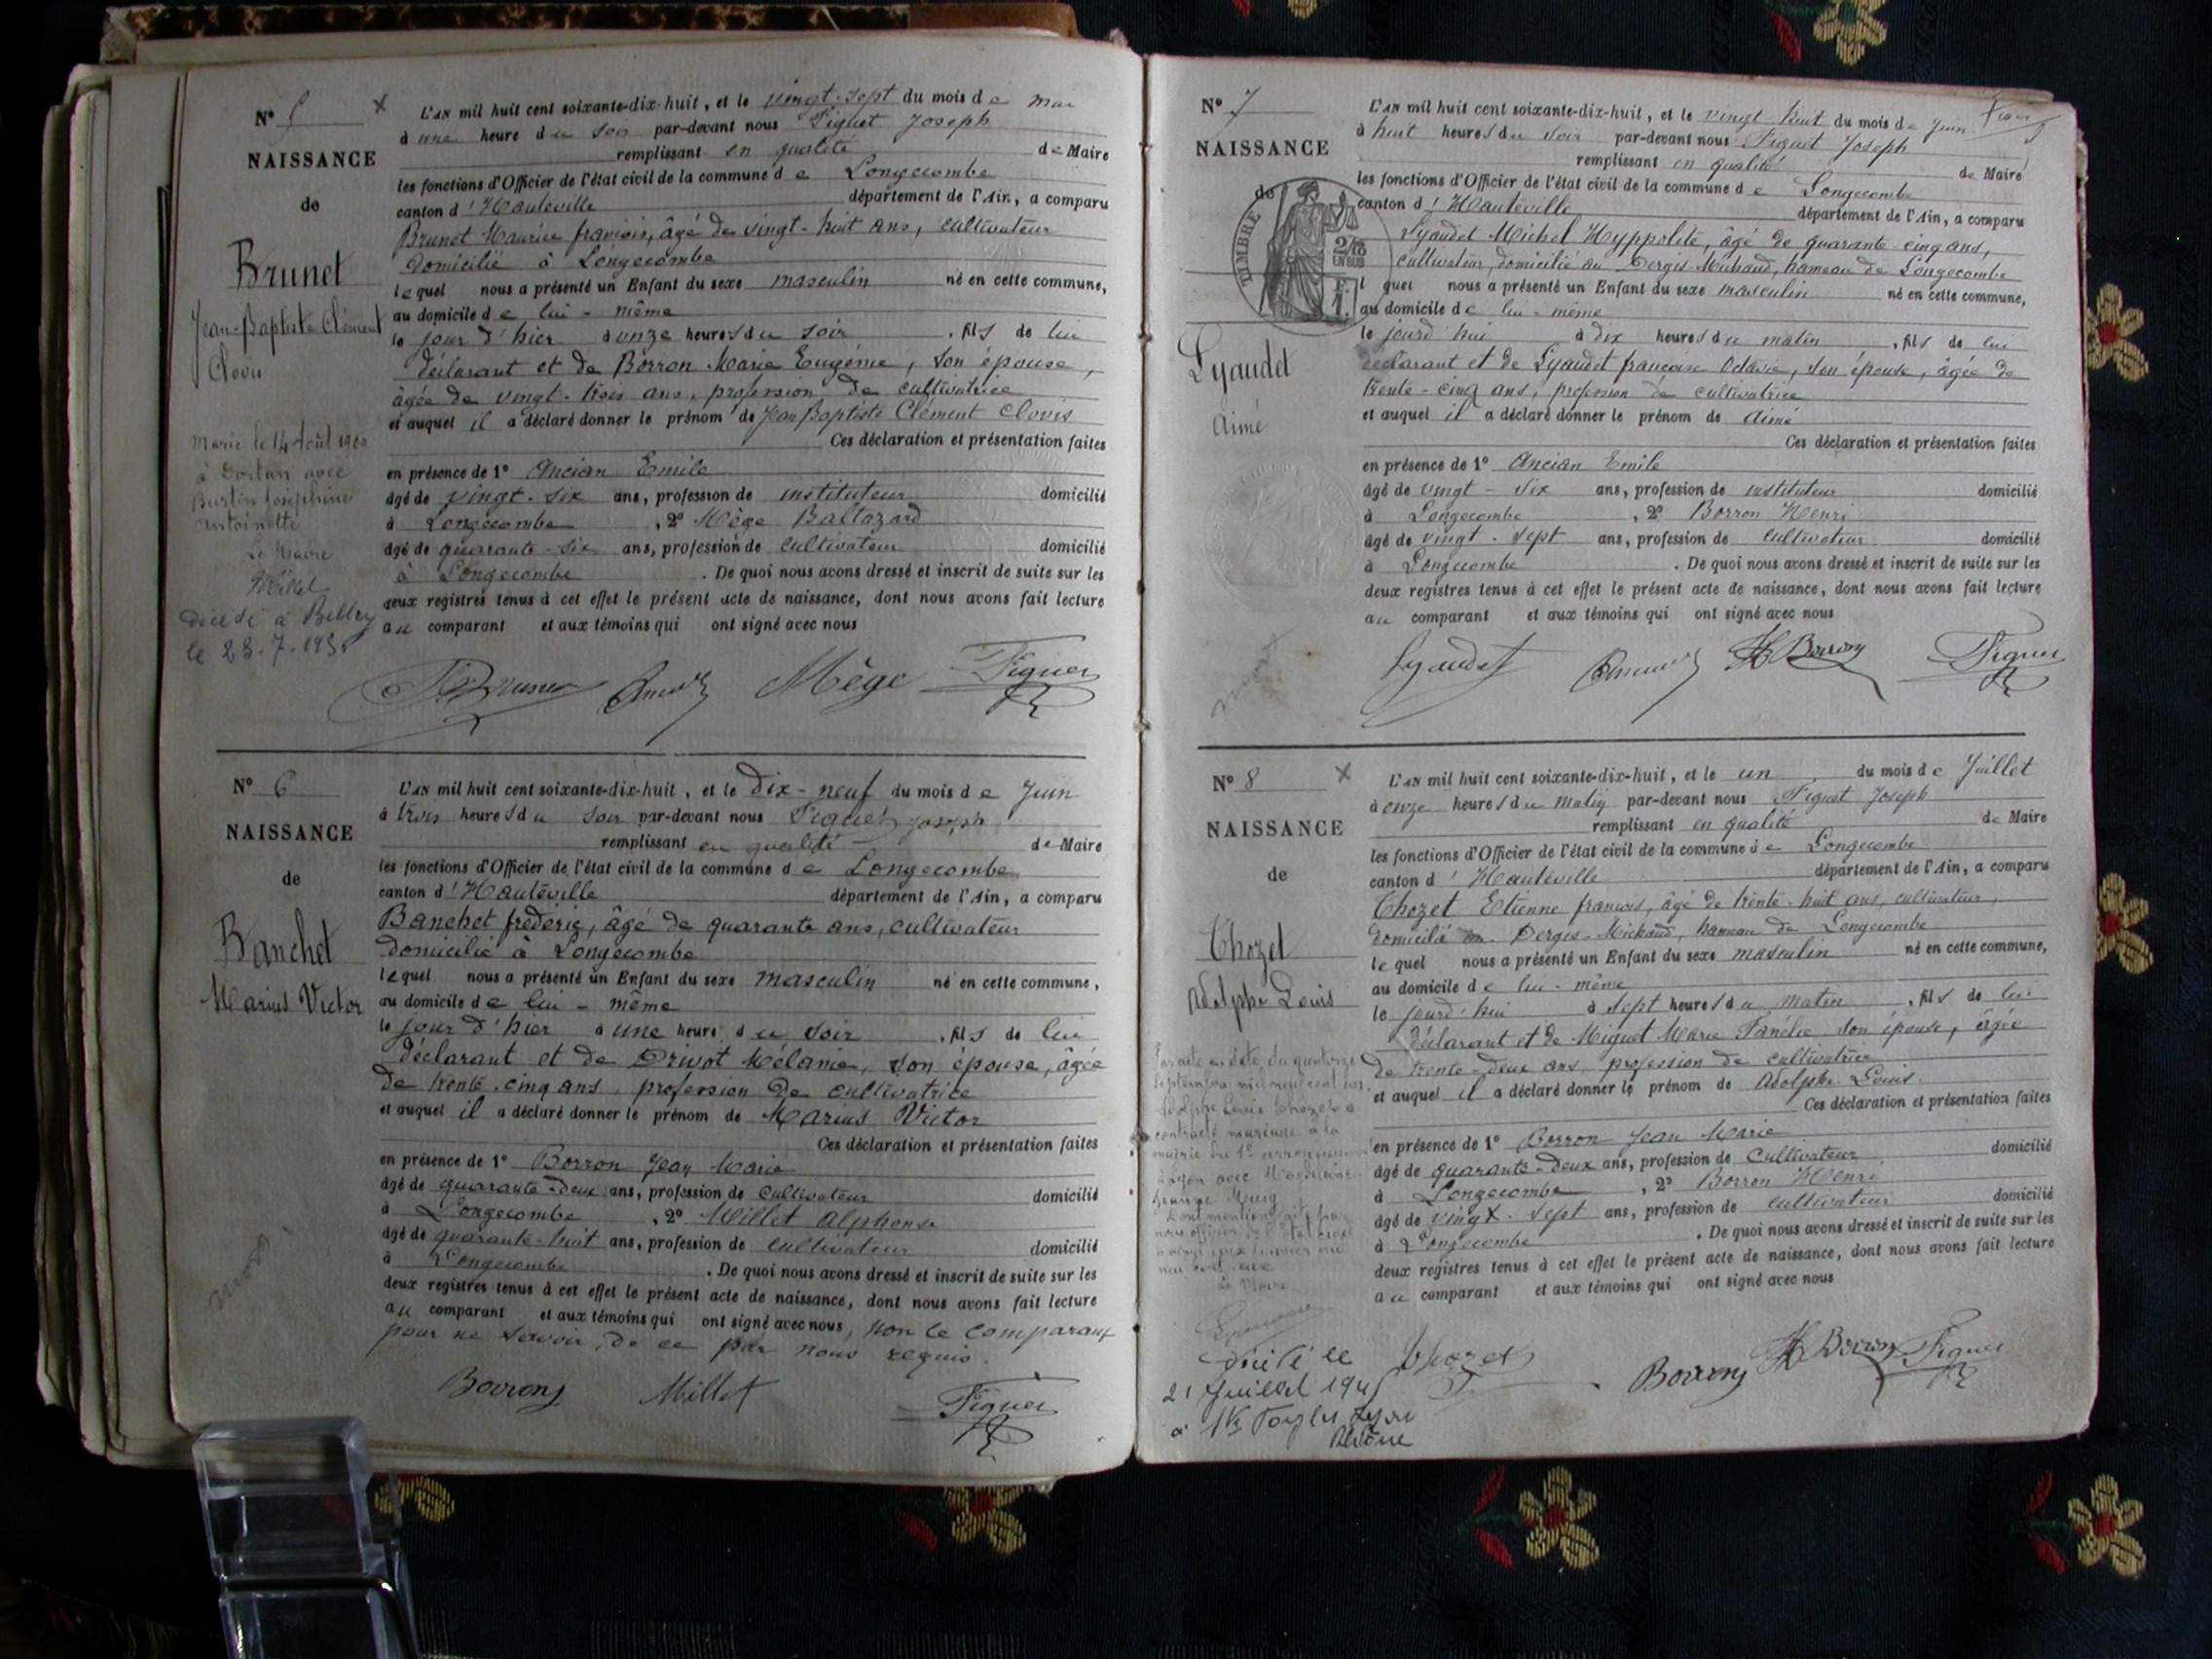 N° 5
NAISSANCE
de
Brunet
Jean-Baptiste Clément
Clovis
Marié le 14 Août 1900
à Dortan avec
Joséphine
Antoinette
Le Maire
Millet
Décédé à Belley
le 23-7-193
L'AN mil huit cent soixante-dix-huit, et le vingt-sept du mois de mai
à une heure du soir par-devant nous Figuet Joseph
remplissant en qualité de Maire
les fonctions d'Officier de l'état civil de la commune de Longecombe
canton d'Hauteville département de l'Ain, a comparu
Brunet Maurice françois, âgé de vingt-huit ans, cultivateur
domicilié à Longecombe
lequel nous a présenté un Enfant du sexe masculin né en cette commune,
au domicile de lui-même
le jour d'hier à onze heures du soir, fils de lui
déclarant et de Borron Marie Eugénie, son épouse,
âgée de vingt-trois ans, profession de cultivatrice
et auquel il a déclaré donner le prénom de Jean Baptiste Clément Clovis
Ces déclaration et présentation faites
en présence de 1° Ancian Emile
âgé de vingt-six ans, profession de instituteur domicilié
à Longecombe, 2° Mège Baltazard
âgé de quarante-six ans, profession de cultivateur domicilié
à Longecombe. De quoi nous avons dressé et inscrit de suite sur les
deux registres tenus à cet effet le présent acte de naissance, dont nous avons fait lecture
au comparant et aux témoins qui ont signé avec nous
Brunet Ancian Mège Figuet
N° 6
NAISSANCE
de
Banchet
Marius Victor
mort
L'AN mil huit cent soixante-dix-huit, et le dix-neuf du mois de Juin
à trois heures du soir par-devant nous Figuet Joseph
remplissant en qualité de Maire
les fonctions d'Officier de l'état civil de la commune de Longecombe
canton d'Hauteville département de l'Ain, a comparu
Banchet frédéric, âgé de quarante ans, cultivateur
domicilié à Longecombe
lequel nous a présenté un Enfant du sexe masculin né en cette commune,
au domicile de lui-même
le jour d'hier à une heure du soir, fils de lui
déclarant et de Drivot Mélanie, son épouse, âgée
de trente-cinq ans, profession de cultivatrice
et auquel il a déclaré donner le prénom de Marius Victor
Ces déclaration et présentation faites
en présence de 1° Borron Jean Marie
âgé de quarante-deux ans, profession de cultivateur domicilié
à Longecombe, 2° Millet Alphonse
âgé de quarante-huit ans, profession de cultivateur domicilié
à Longecombe. De quoi nous avons dressé et inscrit de suite sur les
deux registres tenus à cet effet le présent acte de naissance, dont nous avons fait lecture
au comparant et aux témoins qui ont signé avec nous, non le comparant
pour ne savoir, de ce par nous requis.
Borron Millet Figuet
N° 7
NAISSANCE
de
TIMBRE
2/10
EN SUS
Lyaudet
Aimé
mort
L'AN mil huit cent soixante-dix-huit, et le vingt huit du mois de Juin
à huit heures du soir par-devant nous Figuet Joseph
remplissant en qualité de Maire
les fonctions d'Officier de l'état civil de la commune de Longecombe
canton d'Hauteville département de l'Ain, a comparu
Lyaudet Michel Hyppolite, âgé de quarante-cinq ans,
cultivateur, domicilié au Dergis-Michaud, hameau de Longecombe
lequel nous a présenté un Enfant du sexe masculin né en cette commune,
au domicile de lui-même
le jourd'hui à dix heures du matin, fils de lui
déclarant et de Lyaudet françoise Octavie, son épouse, âgée de
trente-cinq ans, profession de cultivatrice
et auquel il a déclaré donner le prénom de Aimé
Ces déclaration et présentation faites
en présence de 1° Ancian Emile
âgé de vingt-six ans, profession de instituteur domicilié
à Longecombe, 2° Borron Henri
âgé de vingt-sept ans, profession de cultivateur domicilié
à Longecombe. De quoi nous avons dressé et inscrit de suite sur les
deux registres tenus à cet effet le présent acte de naissance, dont nous avons fait lecture
au comparant et aux témoins qui ont signé avec nous
Lyaudet Ancian H Borron Figuet
N° 8
NAISSANCE
de
Chozet
Adolphe Louis
Par acte en date du quatorze
septembre mil neuf cent
Adolphe Louis Chozet a
contracté mariage à la
mairie du 1er arrondissement
Lyon avec
Le Maire
Décédé le
21 Juillet 194
à
Rhône
L'AN mil huit cent soixante-dix-huit, et le un du mois de Juillet
à onze heures du matin par-devant nous Figuet Joseph
remplissant en qualité de Maire
les fonctions d'Officier de l'état civil de la commune de Longecombe
canton d'Hauteville département de l'Ain, a comparu
Chozet Etienne françois, âgé de trente-huit ans, cultivateur,
domicilié Dergis-Michaud, hameau de Longecombe
lequel nous a présenté un Enfant du sexe masculin né en cette commune,
au domicile de lui-même
le jourd'hui à sept heures du matin, fils de lui
déclarant et de Miguet Marie Fanélie son épouse, âgée
de trente-deux ans, profession de cultivatrice
et auquel il a déclaré donner le prénom de Adolphe Louis.
Ces déclaration et présentation faites
en présence de 1° Borron Jean Marie
âgé de quarante-deux ans, profession de cultivateur domicilié
à Longecombe, 2° Borron Henri
âgé de vingt-sept ans, profession de cultivateur domicilié
à Longecombe. De quoi nous avons dressé et inscrit de suite sur les
deux registres tenus à cet effet le présent acte de naissance, dont nous avons fait lecture
au comparant et aux témoins qui ont signé avec nous
Chozet Borron H Borron Figuet